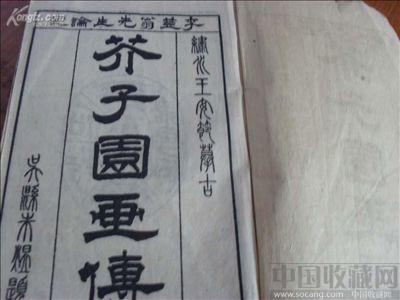 李笠翁先生論
繡水王安節摹古
芥子園畫傳
吳縣朱 題
中国收藏网
www.socang.com 中国收藏网